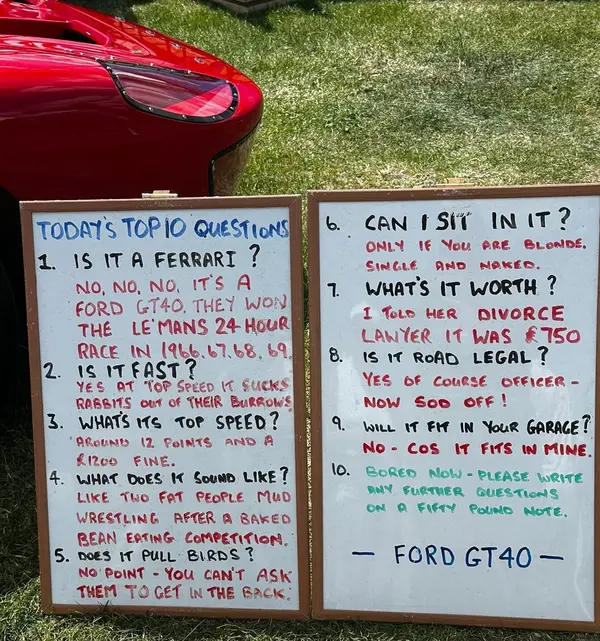 TODAY'S TOP 10 QUESTIONS
1. IS IT A FERRARI ?
NO, NO, NO, IT'S A
FORD GT40. THEY WON
THE LE'MANS 24 HOUR
RACE IN 1966.67.68.69.
2. IS IT FAST?
YES AT TOP SPEED IT SUCKS
RABBITS OUT OF THEIR BURROWS
3. WHAT'S ITS TOP SPEED?
AROUND 12 POINTS AND A
£1200 FINE.
4. WHAT DOES IT SOUND LIKE?
LIKE TWO FAT PEOPLE MUD
WRESTLING AFTER A BAKED
BEAN EATING COMPETITION.
5. DOES IT PULL BIRDS?
NO POINT - YOU CAN'T ASK
THEM TO GET IN THE BACK.
6. CAN I SIT IN IT?
ONLY IF YOU ARE BLONDE.
SINGLE AND NAKED.
7. WHAT'S IT WORTH ?
I TOLD HER DIVORCE
LAWYER IT WAS £750
8. IS IT ROAD LEGAL?
YES OF COURSE OFFICER -
NOW SOD OFF!
9. WILL IT FIT IN YOUR GARAGE?
NO - COS IT FITS IN MINE.
10. BORED NOW - PLEASE WRITE
ANY FURTHER QUESTIONS
ON A FIFTY POUND NOTE.
— FORD GT40 —